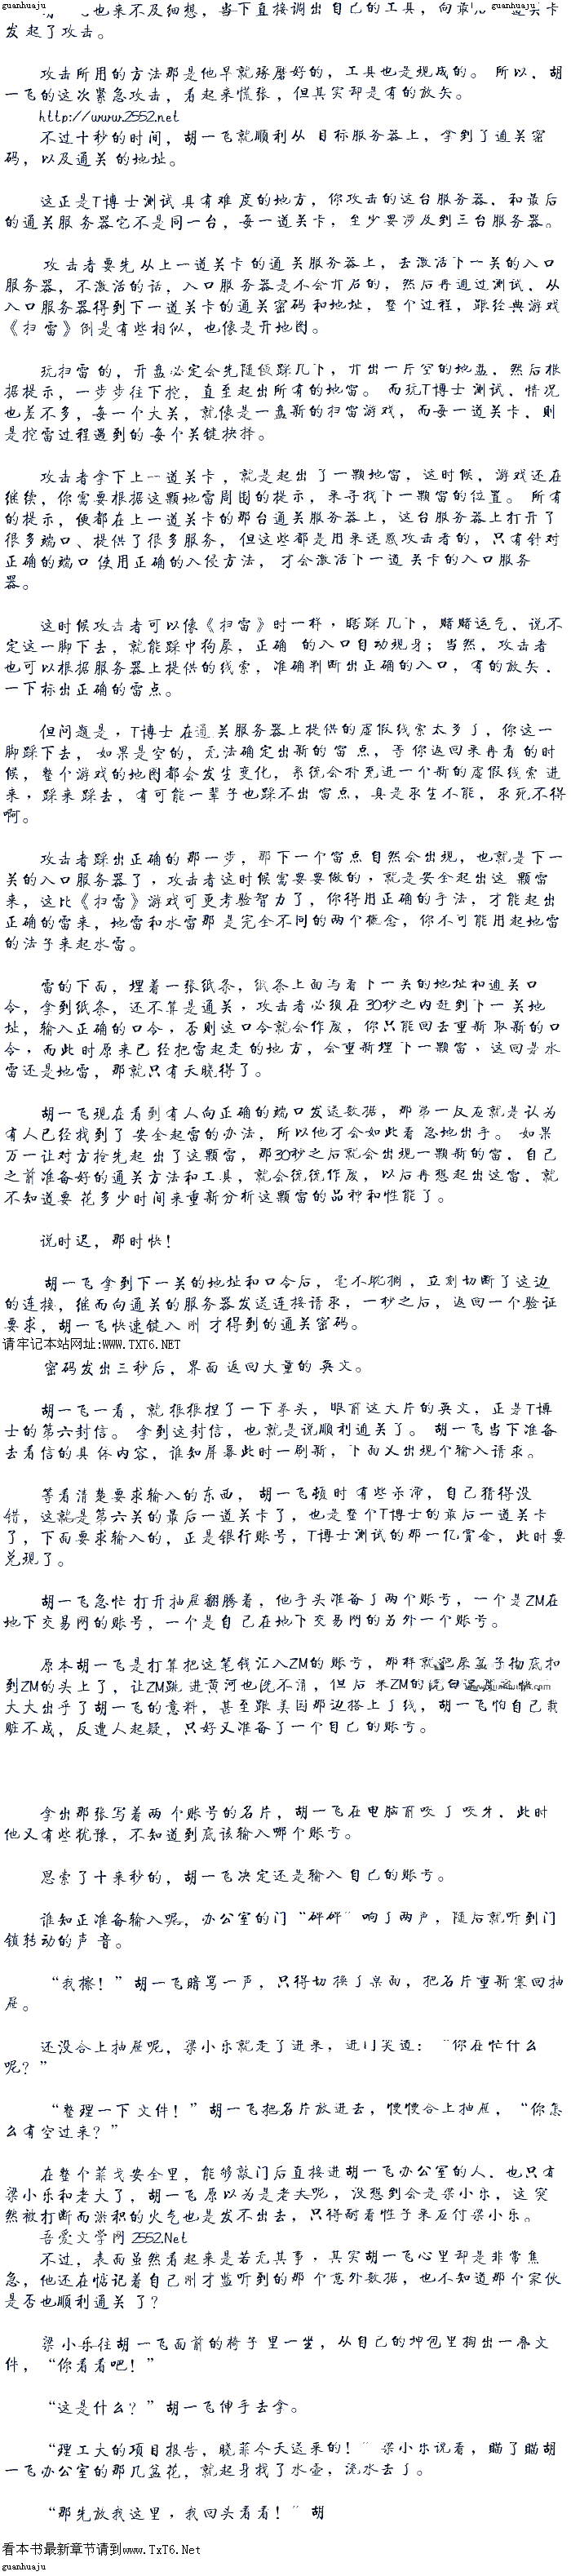 guanhuaju guanhuaju
也来不及细想，当下直接调出自己的工具，向最
关卡
发起了攻击。
攻击所用的方法那是他早就琢磨好的，工具也是现成的。所以，胡
一飞的这次紧急攻击，看起来慌张，但其实却是有的放矢。
http://www.2552.net
不过十秒的时间，胡一飞就顺利从目标服务器上，拿到了通关密
码，以及通关的地址。
这正是T博士测试具有难度的地方，你攻击的这台服务器，和最后
的通关服务器它不是同一台，每一道关卡，至少要涉及到三台服务器。
攻击者要先从上一道关卡的通关服务器上，去激活下一关的入口
服务器，不激活的话，入口服务器是不会开启的，然后再通过测试，从
入口服务器得到下一道关卡的通关密码和地址，整个过程，跟经典游戏
《扫雷》倒是有些相似，也像是开地图。
玩扫雷的，开盘必定会先随便踩几下，开出一片空的地盘，然后根
据提示，一步步往下挖，直至起出所有的地雷。而玩T博士测试，情况
也差不多，每一个大关，就像是一盘新的扫雷游戏，而每一道关卡，则
是挖雷过程遇到的每个关键抉择。
攻击者拿下上一道关卡，就是起出了一颗地雷，这时候，游戏还在
继续，你需要根据这颗地雷周围的提示，来寻找下一颗雷的位置。所有
的提示，便都在上一道关卡的那台通关服务器上，这台服务器上打开了
很多端口、提供了很多服务，但这些都是用来迷惑攻击者的，只有针对
正确的端口使用正确的入侵方法，才会激活下一道关卡的入口服务
器。
这时候攻击者可以像《扫雷》时一样，瞎踩几下，赌赌运气，说不
定这一脚下去，就能踩中狗屎，正确的入口自动现身；当然，攻击者
也可以根据服务器上提供的线索，准确判断出正确的入口，有的放矢，
一下标出正确的雷点。
但问题是，T博士在通关服务器上提供的虚假线索太多了，你这一
脚踩下去，如果是空的，无法确定出新的雷点，等你返回来再看的时
候，整个游戏的地图都会发生变化，系统会补充进一个新的虚假线索进
来，踩来踩去，有可能一辈子也踩不出雷点，真是求生不能，求死不得
啊。
攻击者踩出正确的那一步，那下一个雷点自然会出现，也就是下一
关的入口服务器了，攻击者这时候需要要做的，就是安全起出这颗雷
来，这比《扫雷》游戏可更考验智力了，你得用正确的手法，才能起出
正确的雷来，地雷和水雷那是完全不同的两个概念，你不可能用起地雷
的法子来起水雷。
雷的下面，埋着一张纸条，纸条上面写着下一关的地址和通关口
令，拿到纸条，还不算是通关，攻击者必须在30秒之内赶到下一关地
址，输入正确的口令，否则这口令就会作废，你只能回去重新取新的口
令，而此时原来已经把雷起走的地方，会重新埋下一颗雷，这回是水
雷还是地雷，那就只有天晓得了。
胡一飞现在看到有人向正确的端口发送数据，那第一反应就是认为
有人已经找到了安全起雷的办法，所以他才会如此着急地出手。如果
万一让对方抢先起出了这颗雷，那30秒之后就会出现一颗新的雷，自己
之前准备好的通关方法和工具，就会统统作废，以后再想起出这雷，就
不知道要花多少时间来重新分析这颗雷的品种和性能了。
说时迟，那时快！
胡一飞拿到下一关的地址和口令后，毫不耽搁，立刻切断了这边
的连接，继而向通关的服务器发送连接请求，一秒之后，返回一个验证
要求，胡一飞快速键入刚才得到的通关密码。
请牢记本站网址:WWW.TXT6.NET
密码发出三秒后，界面返回大量的英文。
胡一飞一看，就狠狠捏了一下拳头，眼前这大片的英文，正是T博
士的第六封信。拿到这封信，也就是说顺利通关了。胡一飞当下准备
去看信的具体内容，谁知屏幕此时一刷新，下面又出现个输入请求。
等看清楚要求输入的东西，胡一飞顿时有些呆滞，自己猜得没
错，这就是第六关的最后一道关卡了，也是整个T博士的最后一道关卡
了，下面要求输入的，正是银行账号，T博士测试的那一亿赏金，此时要
兑现了。
胡一飞急忙打开抽屉翻腾着，他手头准备了两个账号，一个是ZM在
地下交易网的账号，一个是自己在地下交易网的另外一个账号。
原本胡一飞是打算把这笔钱汇入ZM的账号，那样就把屎盆子彻底扣
到ZM的头上了，让ZM跳进黄河也洗不清，但后来ZM的洗白
大大出乎了胡一飞的意料，甚至跟美国那边搭上了线，胡一飞怕自己栽
赃不成，反遭人起疑，只好又准备了一个自己的账号。
拿出那张写着两个账号的名片，胡一飞在电脑前咬了咬牙，此时
他又有些犹豫，不知道到底该输入哪个账号。
思索了十来秒的，胡一飞决定还是输入自己的账号。
谁知正准备输入呢，办公室的门“砰砰”响了两声，随后就听到门
锁转动的声音。
“我擦！”胡一飞暗骂一声，只得切换了桌面，把名片重新塞回抽
屉。
还没合上抽屉呢，梁小乐就走了进来，进门笑道：“你在忙什么
呢？”
“整理一下文件！”胡一飞把名片放进去，慢慢合上抽屉，“你怎
么有空过来？”
在整个菲戈安全里，能够敲门后直接进胡一飞办公室的人，也只有
梁小乐和老大了，胡一飞原以为是老大呢，没想到会是梁小乐，这突
然被打断而淤积的火气也是发不出去，只得耐着性子来应付梁小乐。
吾爱文学网 2552.Net
不过，表面虽然看起来是若无其事，其实胡一飞心里却是非常焦
急，他还在惦记着自己刚才监听到的那个意外数据，也不知道那个家伙
是否也顺利通关了？
梁小乐往胡一飞面前的椅子里一坐，从自己的坤包里掏出一叠文
件，“你看看吧！”
“这是什么？”胡一飞伸手去拿。
“理工大的项目报告，晓菲今天送来的！”梁小乐说着，瞄了瞄胡
一飞办公室的那几盆花，就起身找了水壶，浇水去了。
“那先放我这里，我回头看看！”胡
看本书最新章节请到www.TxT6.Net
guanhuaju